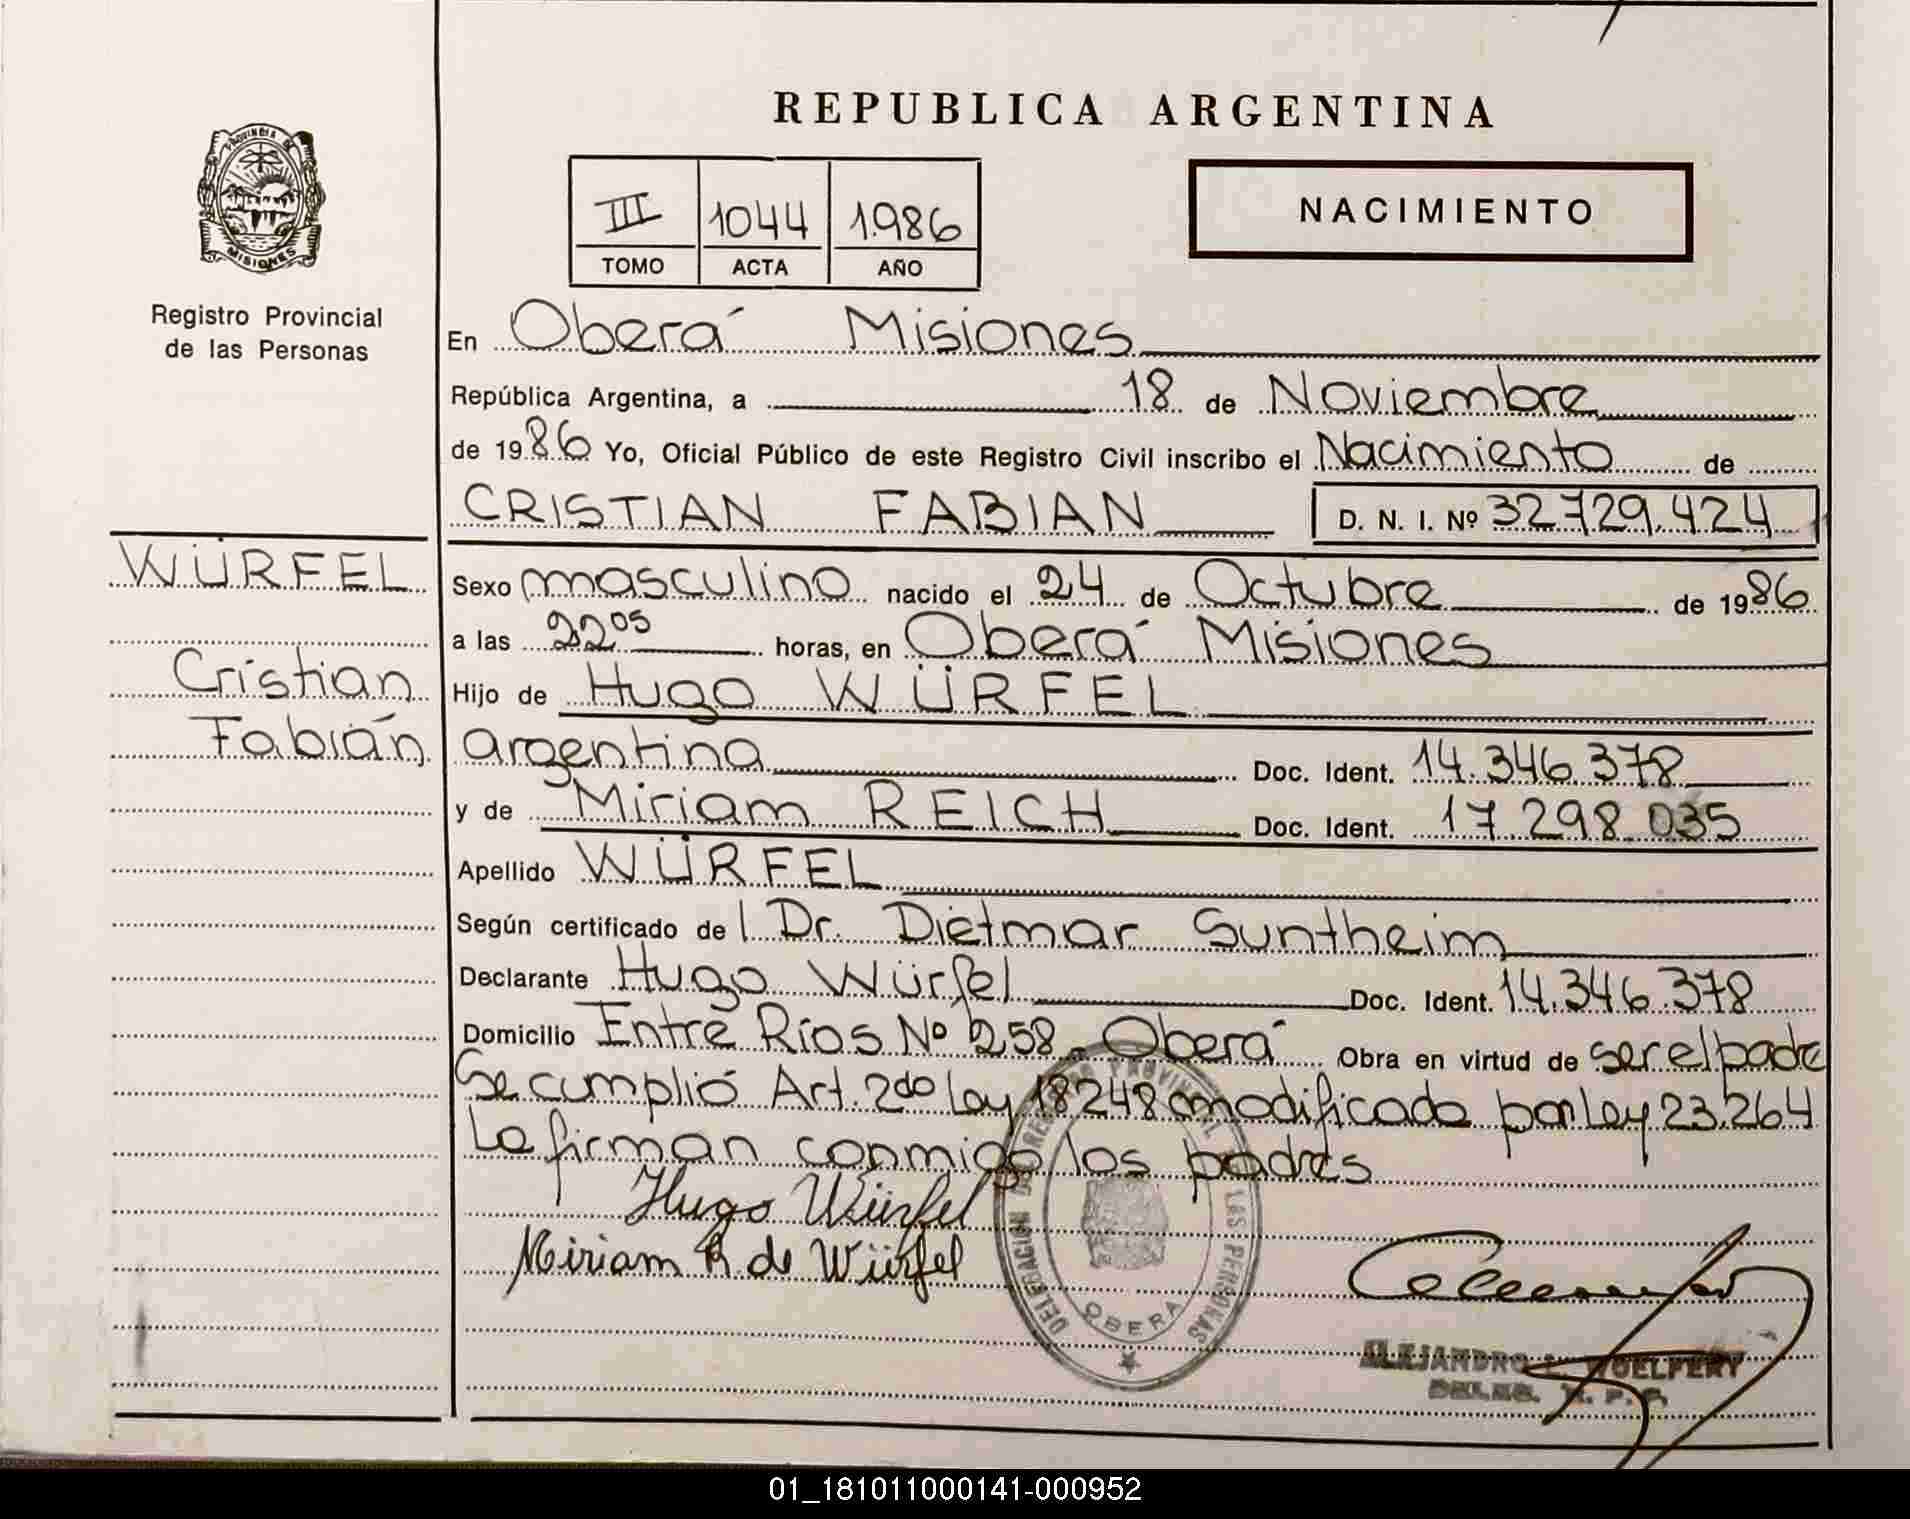 REPUBLICA ARGENTINA
PROVINCIA DE
MISIONES
Registro Provincial
de las Personas
III 1044 1.986
TOMO ACTA AÑO
NACIMIENTO
En Oberá Misiones
República Argentina, a 18 de Noviembre
de 1986 Yo, Oficial Público de este Registro Civil inscribo el Nacimiento de
CRISTIAN FABIAN D. N. I. Nº 32.729.424
WÜRFEL
Cristian
Fabián
Sexo masculino nacido el 24 de Octubre de 1986
a las 22 05 horas, en Oberá Misiones
Hijo de Hugo WÜRFEL
argentina Doc. Ident. 14.346.378
y de Miriam REICH Doc. Ident. 17.298.035
Apellido WÜRFEL
Según certificado de l Dr. Dietmar Suntheim
Declarante Hugo Würfel Doc. Ident. 14.346.378
Domicilio Entre Ríos Nº 258 - Oberá Obra en virtud de ser el padre
Se cumplió Art. 2do Ley 18248 modificada por ley 23.264
La firman conmigo los padres
Hugo Würfel
Miriam R de Würfel
DELEGACION DE REGISTRO PROVINCIAL LAS PERSONAS
OBERA
ALEJANDRO
01_181011000141-000952